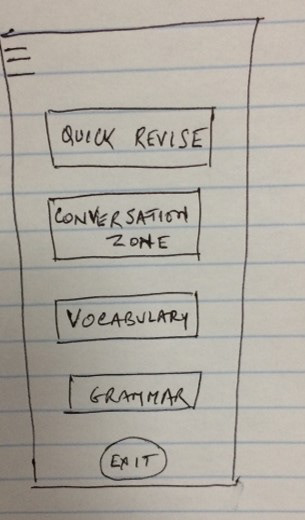 QUICK REVISE
CONVERSATION
ZONE
VOCABULARY
GRAMMAR
EXIT